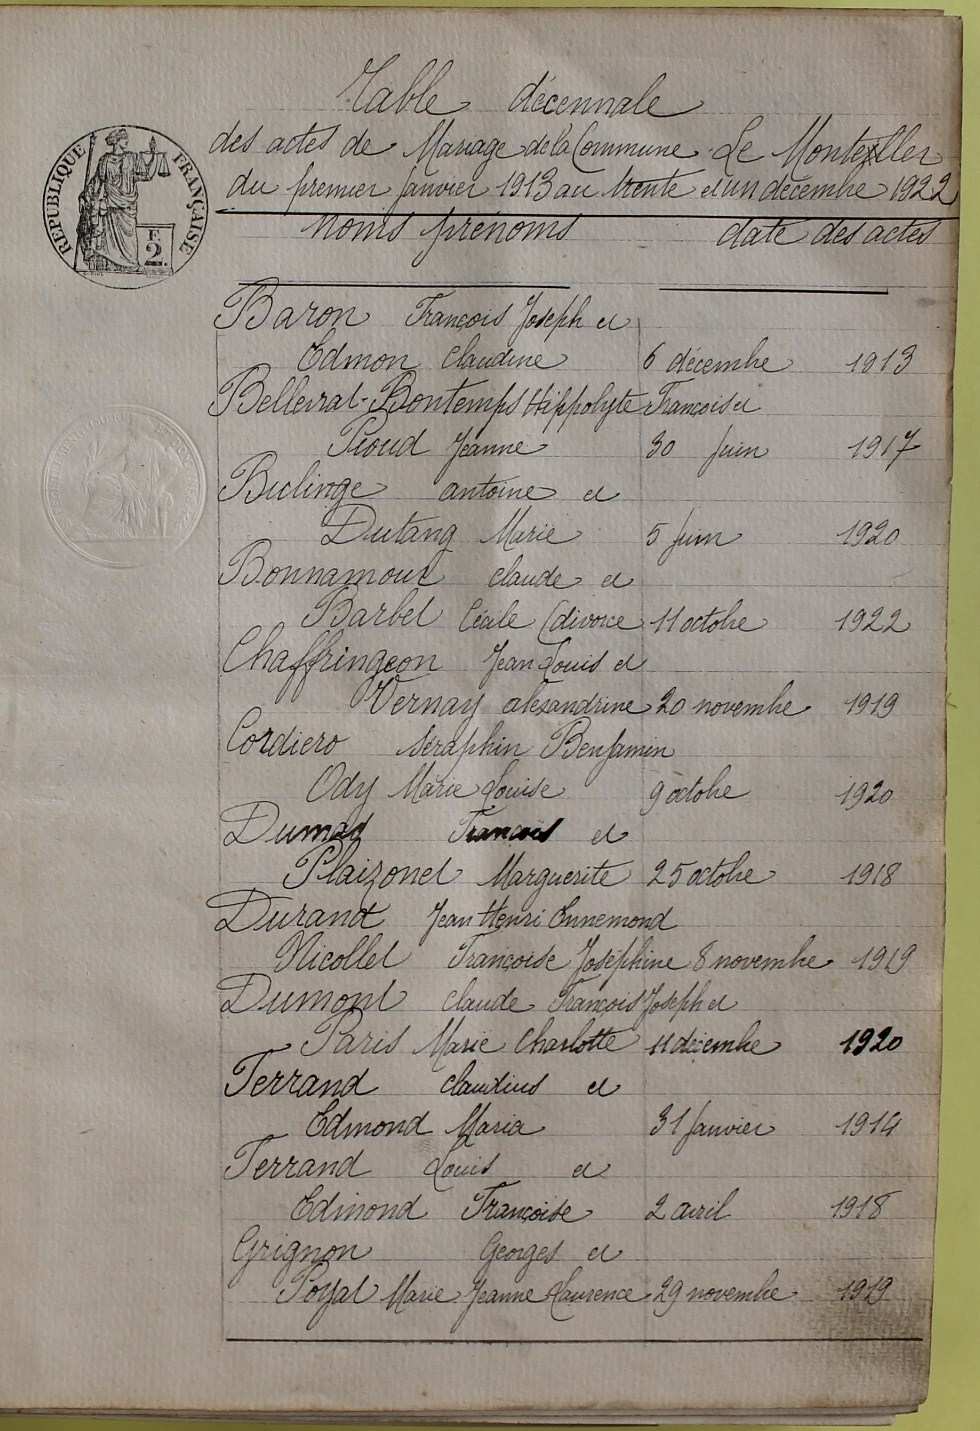 RÉPUBLIQUE FRANÇAISE
F.
2.
Table décennale
des actes de Mariage de la Commune Le Monteller
du premier janvier 1913 au trente et un décembre 1922
Noms prénoms date des actes
Baron François Joseph et
Edmon Claudine 6 décembre 1913
Belleval-Bontemps Hippolyte François et
Proud Jeanne 30 juin 1917
Bulinge antoine et
Dutang Marie 5 juin 1920
Bonnamour claude et
Barbet Cécile (divorce 11 octobre 1922
Chaffringeon Jean Louis et
Vernay alexandrine 20 novembre 1919
Cordiero Séraphin Benjamin
Ody Marie Louise 9 octobre 1920
Dumas François et
Plaizonet Marguerite 25 octobre 1918
Durand Jean Henri Ennemond
Nicollet Françoise Joséphine 8 novembre 1919
Dumont claude François Joseph et
Paris Marie Charlotte 11 décembre 1920
Ferrand claudius et
Edmond Maria 31 janvier 1914
Ferrand Louis et
Edmond Françoise 2 avril 1918
Grignon Georges et
Poyat Marie Jeanne Laurence 29 novembre 1919